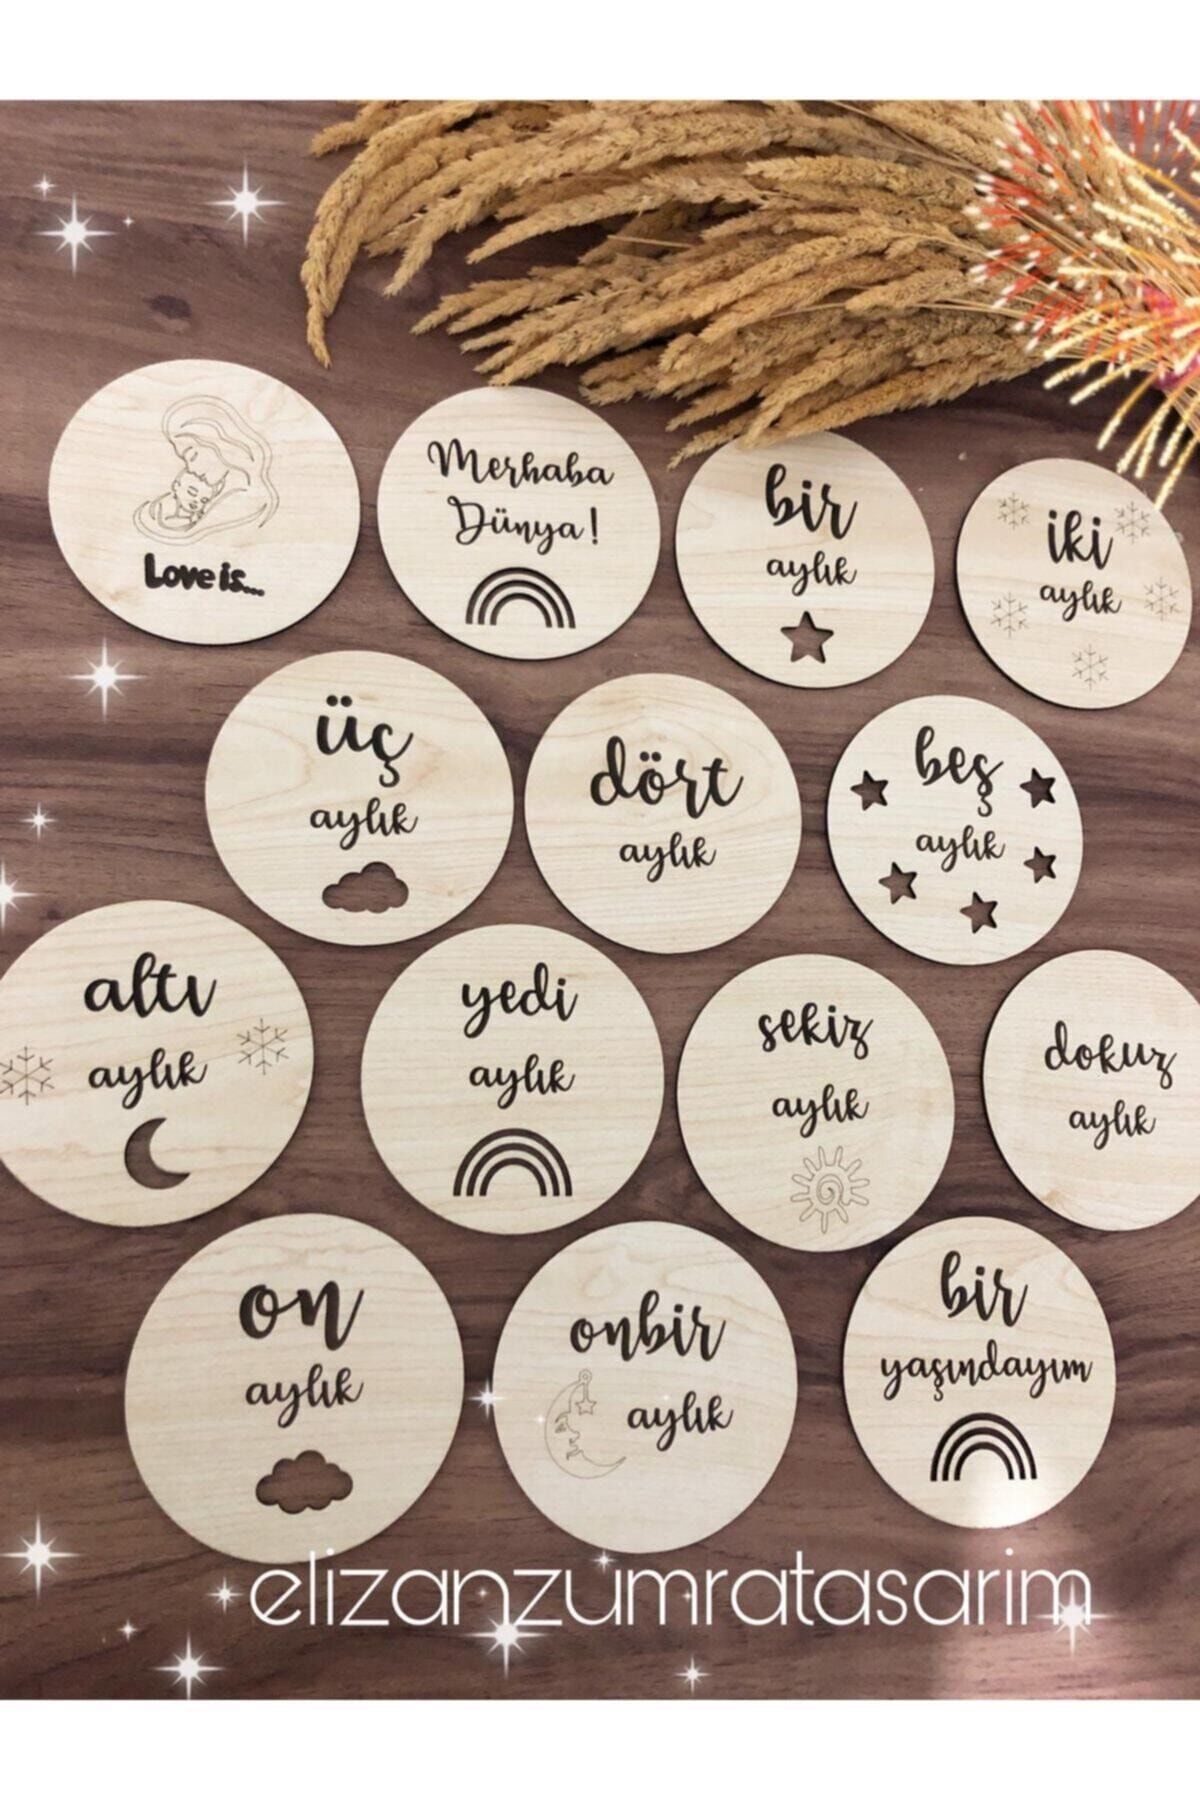 Love is...
Merhaba
Dünya!
bir
aylık
iki
aylık
üç
aylık
dört
aylık
beş
aylık
altı
aylık
yedi
aylık
sekiz
aylık
dokuz
aylık
on
aylık
onbir
aylık
bir
yaşındayım
elizanzumratasarim